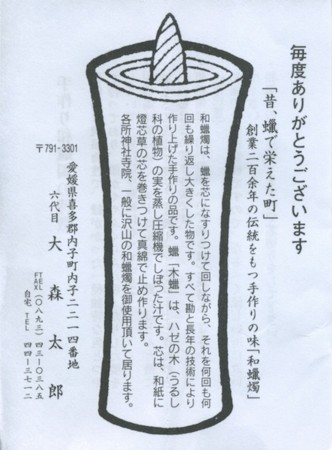 毎度ありがとうございます
「昔、蠟で栄えた町」
創業二百余年の伝統をもつ手作りの味「和蠟燭」
和蠟燭は、蠟を芯になすりつけて回しながら、それを何回も何
回も繰り返し大きくした物です。すべて勘と長年の技術により
作り上げた手作りの品です。蠟「木蠟」は、ハゼの木（うるし
科の植物）の実を蒸し圧縮機でしぼった汁です。芯は、和紙に
燈芯草の芯を巻きつけて真綿で止め作ります。
各所神社寺院、一般に沢山の和蠟燭を御使用頂いて居ります。
〒791-3301
愛媛県喜多郡内子町内子二二一四番地
六代目 大森太郎
TEL
FAX（〇八九三）四三−〇三八五
自宅TEL 四四−三七一二